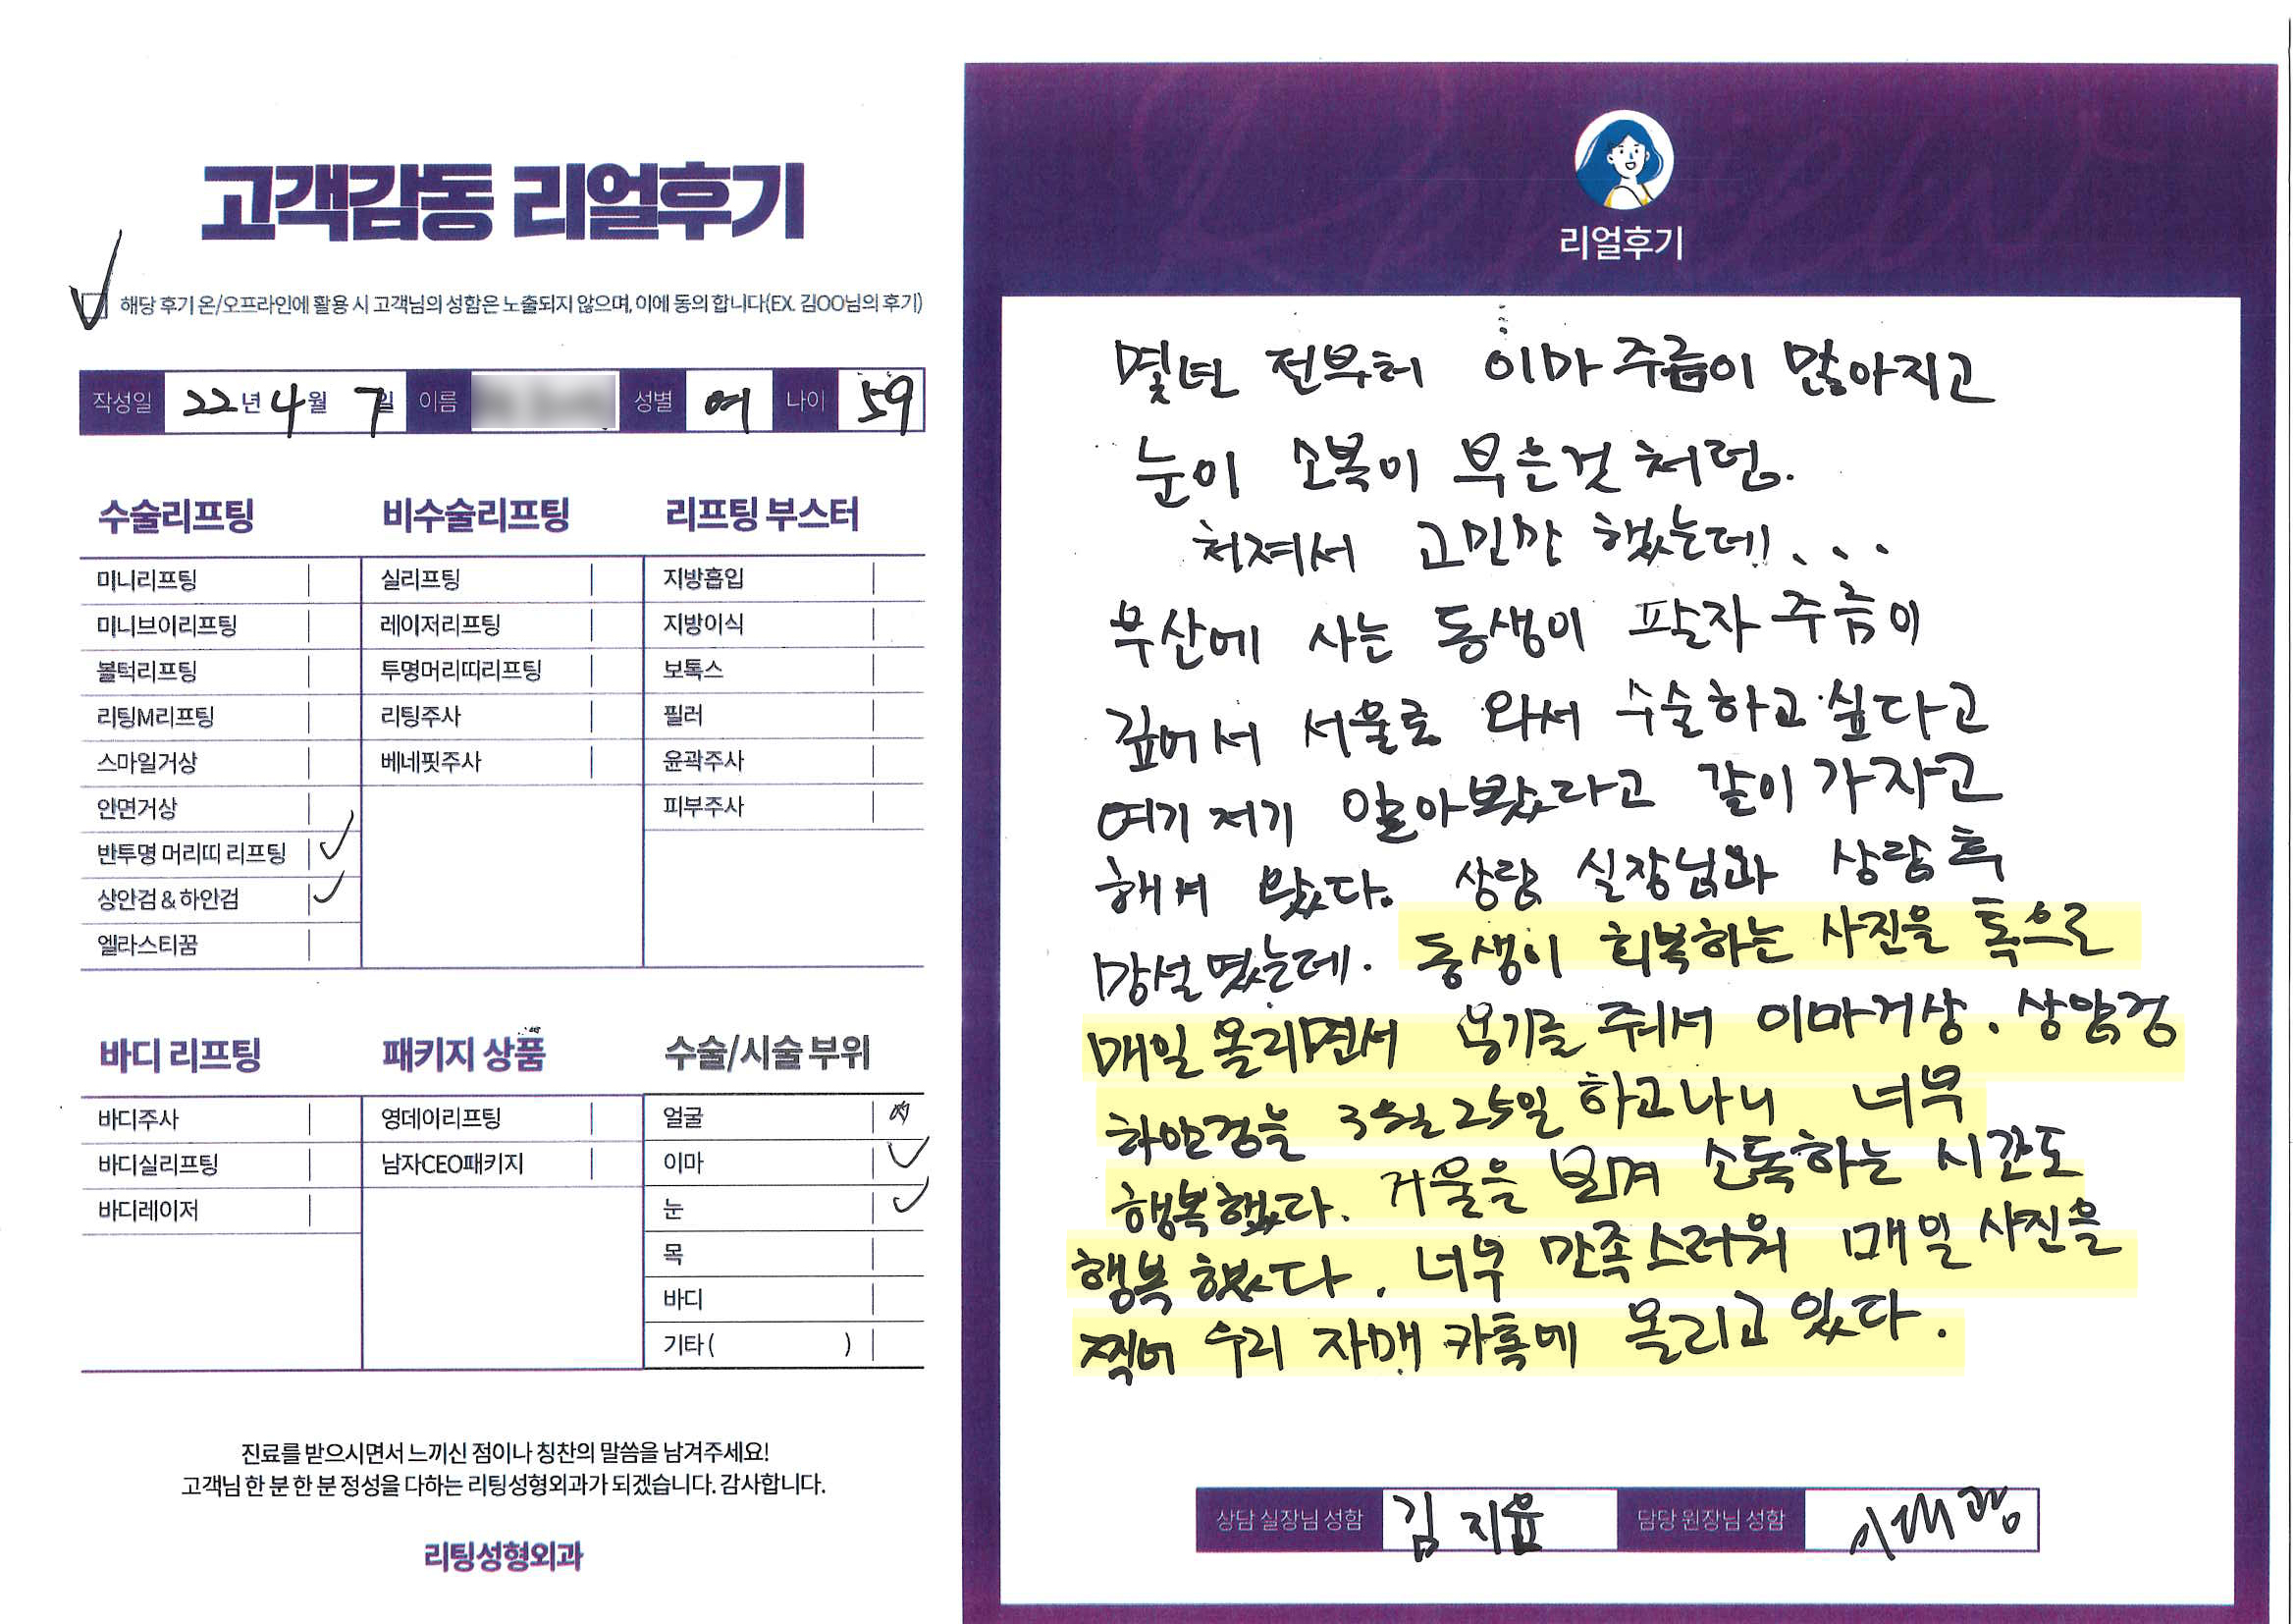 고객감동 리얼후기
해당 후기 온/오프라인에 활용 시 고객님의 성함은 노출되지 않으며, 이에 동의 합니다(EX. 김OO님의 후기)
작성일 22년 4월 7일 이름 성별 여 나이 59
수술리프팅
미니리프팅
미니브이리프팅
볼턱리프팅
리팅M리프팅
스마일거상
안면거상
반투명 머리띠 리프팅
상안검 & 하안검
엘라스티꿈
비수술리프팅
실리프팅
레이저리프팅
투명머리띠리프팅
리팅주사
베네핏주사
리프팅 부스터
지방흡입
지방이식
보톡스
필러
윤곽주사
피부주사
바디 리프팅
바디주사
바디실리프팅
바디레이저
패키지 상품
영데이리프팅
남자CEO패키지
수술/시술 부위
얼굴
이마
눈
목
바디
기타( )
진료를 받으시면서 느끼신 점이나 칭찬의 말씀을 남겨주세요!
고객님 한 분 한 분 정성을 다하는 리팅성형외과가 되겠습니다. 감사합니다.
리팅성형외과
리얼후기
몇년 전부터 이마 주름이 많아지고
눈이 소복이 부은것 처럼.
처져서 고민만 했는데! . . .
부산에 사는 동생이 팔자 주름이
깊어서 서울로 와서 수술하고 싶다고
여기 저기 알아봤다라고 같이 가자고
해서 왔다. 상담 실장님과 상담 후
망설였는데. 동생이 회복하는 사진을 톡으로
매일 올리면서 용기를 줘서 이마거상. 상안검
하안검을 3월 25일 하고나니 너무
행복했다. 거울을 보며 소독하는 시간도
행복했다. 너무 만족스러워 매일 사진을
찍어 우리 자매 카톡에 올리고 있다.
상담 실장님 성함 김지윤 담당 원장님 성함